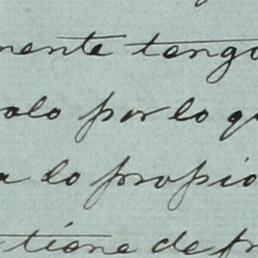 mente tengo
solo por lo q
a lo propio
tiene de pr